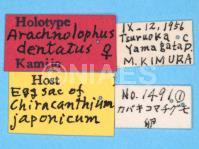 Holotype
Arachnolophus
dentatus ♀
Kamijo
Host
Egg sac of
Chiracanthium
japonicum
IX-12,1956
Tsuruoka C
Yamagata P.
M. KIMURA
NO. 1496 ①
カバキコマチグモ
卵
©NIAES